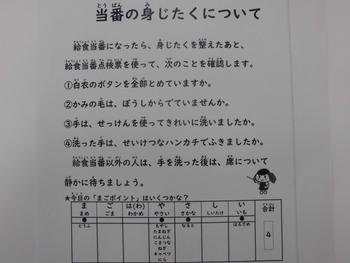 当番の身じたくについて
給食当番になったら、身じたくを整えたあと、
給食当番点検票を使って、次のことを確認します。
①白衣のボタンを全部とめていますか。
②かみの毛は、ぼうしからでていませんか。
③手は、せっけんを使ってきれいに洗いましたか。
④洗った手は、せいけつなハンカチでふきましたか。
給食当番以外の人は、手を洗った後は、席について
静かに待ちましょう。
★今日の「まごポイント」はいくつかな?
ま ご は(わ) や さ し い 合計
まめ ごま わかめ やさい さかな しいたけ いも
● ● ● ● 4
とうふ もやし なると はるさめ
たまねぎ
にんじん
こまつな
ねぎ
キャベツ
にら